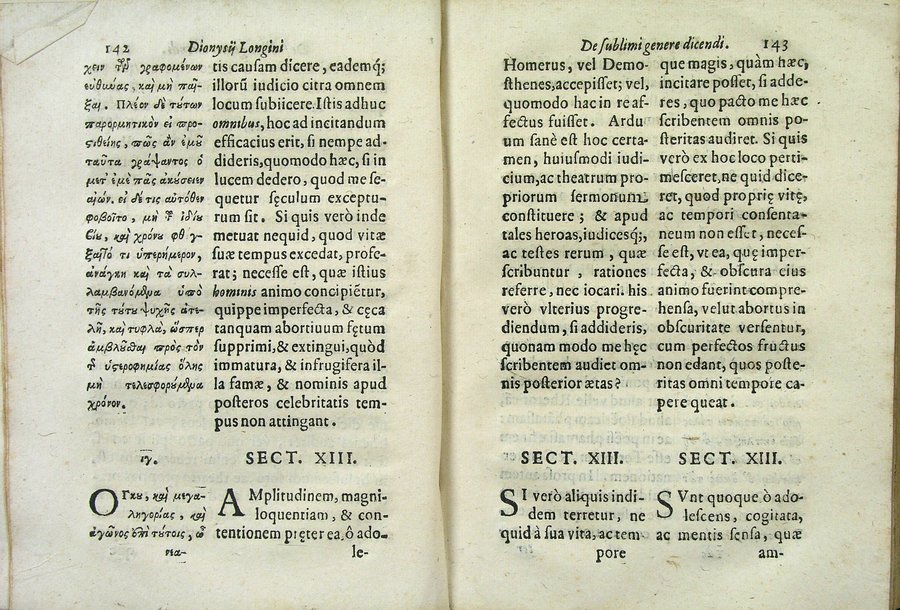 142 Dionysij Longini
χειν τῶν γραφομένων
εὐθύνας, καὶ μὴ παῖ-
ξαι. Πλέον δὲ τούτων
παρορμητικὸν εἰ προσ-
τιθείης, πῶς ἂν ἐμοῦ
ταῦτα γράψαντος ὁ
μετ' ἐμὲ πᾶς ἀκούσειεν
αἰών. εἰ δέ τις αὐτόθεν
φοβοῖτο, μὴ τοῦ ἰδίου
βίου, καὶ χρόνου φθέγ-
ξαιτό τι ὑπερήμερον,
ἀνάγκη καὶ τὰ συλ-
λαμβανόμενα ὑπὸ
τῆς τούτου ψυχῆς ἀτε-
λῆ, καὶ τυφλὰ, ὥσπερ
ἀμβλοῦσθαι πρὸς τὸν
τῆς ὑστεροφημίας ὅλης
μὴ τελεσφορούμενα
χρόνον.
ιγ.
ΟΓκου, καὶ μεγα-
ληγορίας, καὶ
ἀγῶνος ἐπὶ τούτοις, ὦ
νεα-
tis causam dicere, eademq;
illorũ iudicio citra omnem
locum subiicere. Istis adhuc
omnibus, hoc ad incitandum
efficacius erit, si nempe ad-
dideris, quomodo hæc, si in
lucem dedero, quod me se-
quetur sęculum exceptu-
rum sit. Si quis verò inde
metuat nequid, quod vitæ
suæ tempus excedat, profe-
rat; necesse est, quæ istius
hominis animo concipiẽtur,
quippe imperfecta, & cęca
tanquam abortiuum fętum
supprimi, & extingui, quòd
immatura, & infrugifera il-
la famæ, & nominis apud
posteros celebritatis tem-
pus non attingant.
SECT. XIII.
AMplitudinem, magni-
loquentiam, & con-
tentionem pręter ea, ô ado-
le-
De sublimi genere dicendi. 143
Homerus, vel Demo-
sthenes, accepisset; vel,
quomodo hac in re af-
fectus fuisset. Ardu
um sanè est hoc certa-
men, huiusmodi iudi-
cium, ac theatrum pro-
priorum sermonum
constituere; & apud
tales heroas, iudicesq;,
ac testes rerum, quæ
scribuntur, rationes
referre, nec iocari. his
verò vlterius progre-
diendum, si addideris,
quonam modo me hęc
scribentem audiet om-
nis posterior ætas?
SECT. XIII.
SI verò aliquis indi-
dem terretur, ne
quid à sua vita, ac tem
pore
que magis, quàm hæc,
incitare posset, si adde-
res, quo pacto me hæc
scribentem omnis po-
steritas audiret. Si quis
verò ex hoc loco perti-
mesceret, ne quid dice-
ret, quod proprię vitę,
ac tempori consenta-
neum non esset, neces-
se est, vt ea, quę imper-
fecta, & obscura eius
animo fuerint compre-
hensa, velut abortus in
obscuritate versentur,
cum perfectos fructus
non edant, quos poste-
ritas omni tempore ca-
pere queat.
SECT. XIII.
SVnt quoque ô ado-
lescens, cogitata,
ac mentis sensa, quæ
am-